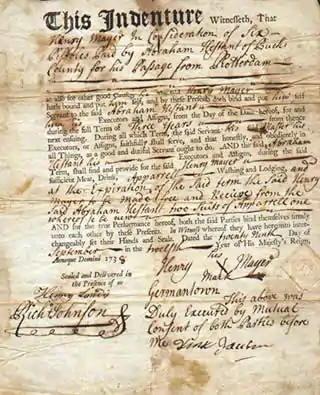 This Indenture Witnesseth, That
Henry Mayer In Consideration of Six
Pistoles Paid by Abraham Hestant of Bucks
County for his Passage from Rotterdam
as also for other good Causes, he the said Henry Mayer
hath bound and put himself, and by these Presents doth bind and put himself
Servant to the said Abraham Hestant
Executors and Assigns, from the Day of the Date hereof, for and
during the full Term of Three Years from thence
next ensuing. During all which Term, the said Servant his said Master his
Executors, or Assigns, faithfully shall serve, and that honestly, and obediently in
all Things, as a good and dutiful Servant ought to do. AND the said Abraham
Hestant his Executors and Assigns, during the said
Term, shall find and provide for the said Henry Mayer
sufficient Meat, Drink, Apparrel Washing and Lodging, and
at the Expiration of the said term the said Henry
Mayer to be made free and Receive from the
Said Abraham Hestant two Suits of Apparrel one
whereof to be new
AND for the true Performance hereof, both the said Parties bind themselves firmly
unto each other by these Presents. In Witness whereof they have hereunto inter-
changeably set their Hands and Seals. Dated the twenty Ninth Day of
September in the twelfth Year of His Majesty's Reign,
Annoque Domini 1738
his
Henry Mayer
Mark
Sealed and Delivered in
the Presence of us
Rich Johnson
Germantown
This above was
Duly Executed by Mutual
Consent of both Parties before
me Dirk Jansen